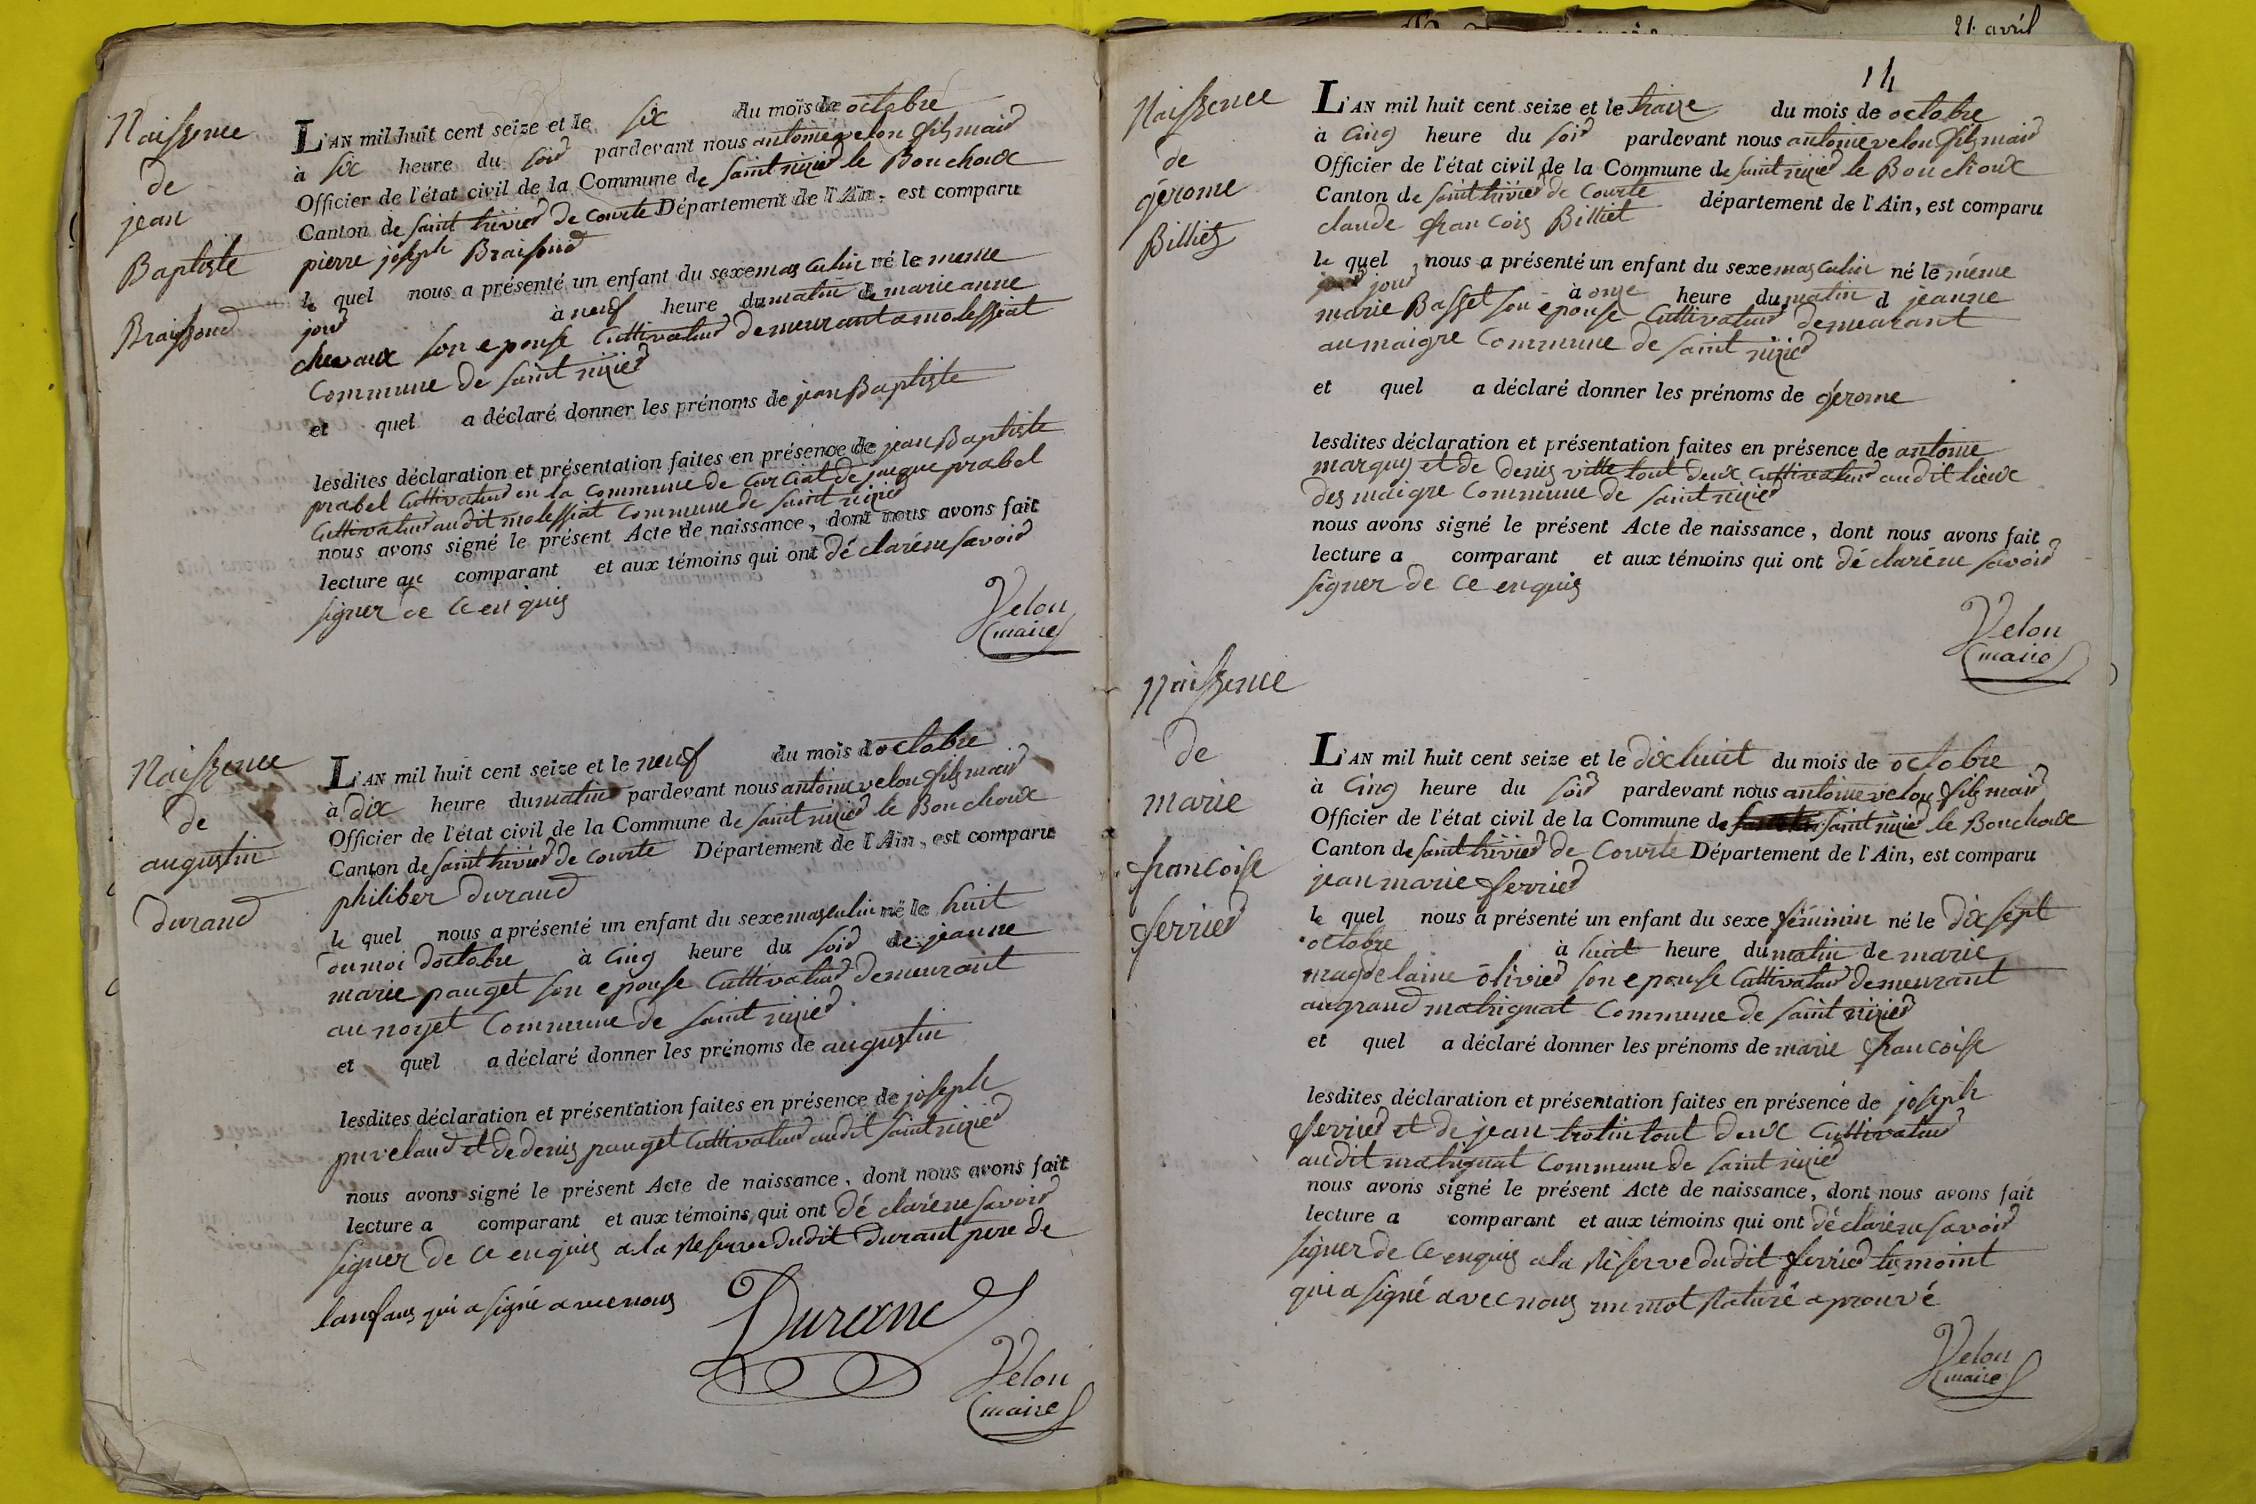 Naissence
de
jean
Baptiste
Braissoud
L'AN mil huit cent seize et le six du mois de octobre
à six heure du soir pardevant nous antoine velon fils maire
Officier de l'état civil de la Commune de saint nizier le Bouchoux
Canton de saint trivier de courte Département de l'Ain, est comparu
pierre joseph Braissoud
le quel nous a présenté un enfant du sexe masculin né le meme
jour à neuf heure du matin de marie anne
chevaux son epouse Cultivateur demeurant a molessiat
Commune de saint nizier
et quel a déclaré donner les prénoms de jean Baptiste
lesdites déclaration et présentation faites en présence de jean Baptiste
prabel Cultivateur en la Commune de Courciat de jacque prabel
Cultivateur au dit molessiat Commune de saint nizier
nous avons signé le présent Acte de naissance, dont nous avons fait
lecture au comparant et aux témoins qui ont déclaré ne savoir
signer de ce enquis
Velon
maire
Naissence
de
augustin
durand
L'AN mil huit cent seize et le neuf du mois d octobre
à dix heure du matin pardevant nous antoine velon fils maire
Officier de l'état civil de la Commune de saint nizier le Bouchoux
Canton de saint trivier de courte Département de l'Ain, est comparu
philiber durand
le quel nous a présenté un enfant du sexe masculin né le huit
du moi doctobre à Cinq heure du soir de jeanne
marie pauget son epouse Cultivateur demeurant
au noyet Commune de saint nizier
et quel a déclaré donner les prénoms de augustin
lesdites déclaration et présentation faites en présence de joseph
puvelaud et de denis pauget Cultivateur au dit saint nizier
nous avons signé le présent Acte de naissance, dont nous avons fait
lecture a comparant et aux témoins qui ont déclaré ne savoir
signer de ce enquis a la Reserve du dit durant pere de
lanfans qui a signé avec nous
Durand
Velon
maire
21. avril
14
Naissence
de
gerome
Billiet
L'AN mil huit cent seize et le traize du mois de octobre
à Cinq heure du soir pardevant nous antoine velon fils maire
Officier de l'état civil de la Commune de saint nizier le Bouchoux
Canton de saint trivier de Courte département de l'Ain, est comparu
claude francois Billiet
le quel nous a présenté un enfant du sexe masculin né le même
jour à onze heure du matin d jeanne
marie Basset son epouse Cultivateur demeurant
au maigre Commune de saint nizier
et quel a déclaré donner les prénoms de gerome
lesdites déclaration et présentation faites en présence de antoine
marquis et de denis ville tout deux Cultivateur au dit lieux
des maigre Commune de saint nizier
nous avons signé le présent Acte de naissance, dont nous avons fait
lecture a comparant et aux témoins qui ont déclaré ne savoir
signer de ce enquis
Velon
maire
Naissence
de
marie
francoise
ferrier
L'AN mil huit cent seize et le dix huit du mois de octobre
à Cinq heure du soir pardevant nous antoine velon fils maire
Officier de l'état civil de la Commune de saint nizier le Bouchoux
Canton de saint trivier de Courte Département de l'Ain, est comparu
jean marie ferrier
le quel nous a présenté un enfant du sexe féminin né le dix sept
octobre à huit heure du matin de marie
magdelaine olivier son epouse Cultivateur demeurant
au grand matrignat Commune de saint nizier
et quel a déclaré donner les prénoms de marie francoise
lesdites déclaration et présentation faites en présence de joseph
ferrier et de jean trotin tout deux Cultivateur
au dit matrignat Commune de saint nizier
nous avons signé le présent Acte de naissance, dont nous avons fait
lecture a comparant et aux témoins qui ont déclaré ne savoir
signer de ce enquis a la Réserve du dit ferrier tesmoint
qui a signé avec nous un mot Raturé aprouvé
Velon
maire